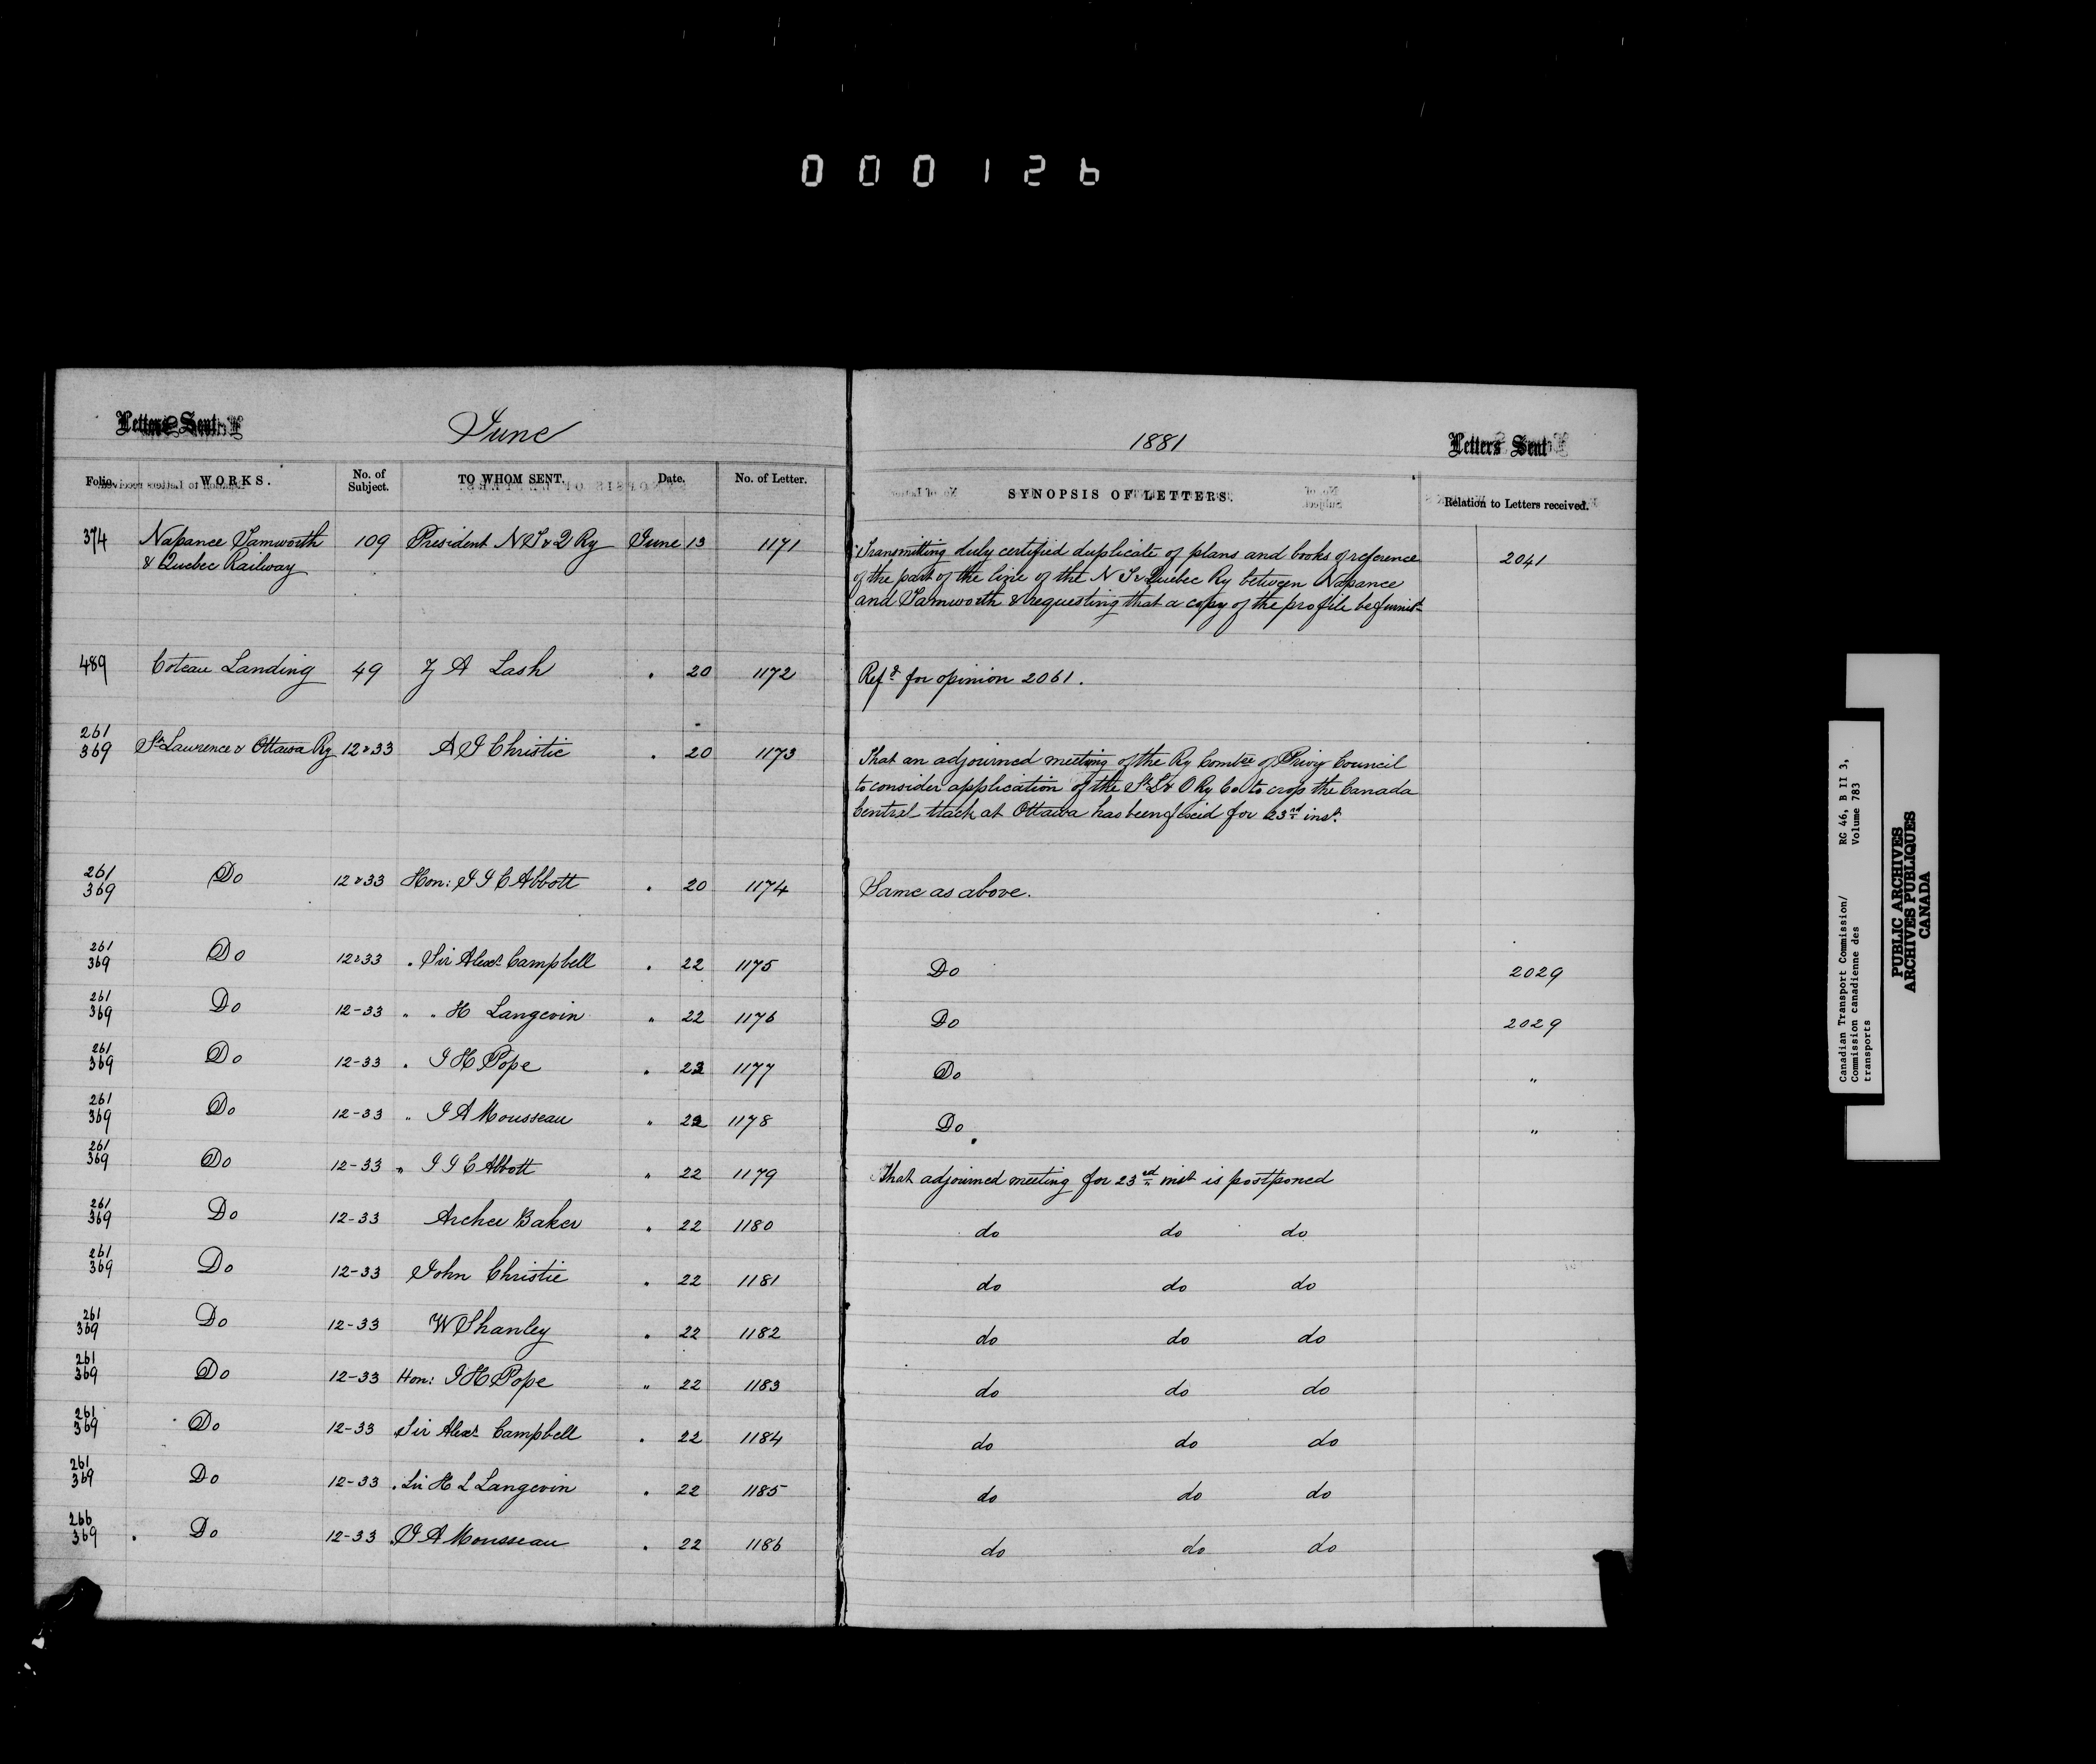 000126
Letters Sent
June
1881
Letters Sent
Folio. WORKS. No. of Subject. TO WHOM SENT. Date. No. of Letter. SYNOPSIS OF LETTERS. Relation to Letters received.
374 Napanee Tamworth 109 President N T & Q Ry June 13 1171 Transmitting duly certified duplicate of plans and books of reference 2041
& Quebec Railway of the part of the line of the N T & Quebec Ry between Napanee
and Tamworth & requesting that a copy of the profile be furnisd
489 Coteau Landing 49 Z A Lash " 20 1172 Refd for opinion 2061.
261
369 St Lawrence & Ottawa Ry 12 & 33 A J Christie " 20 1173 That an adjourned meeting of the Ry Comtee of Privy Council
to consider application of the St L & O Ry Co to crop the Canada
Central track at Ottawa has been fixed for 23rd inst.
261
369 Do 12 & 33 Hon: J J C Abbott " 20 1174 Same as above.
261
369 Do 12 & 33 " Sir Alexr Campbell " 22 1175 Do 2029
261
369 Do 12-33 " " H Langevin " 22 1176 Do 2029
261
369 Do 12-33 " J H Pope " 22 1177 Do "
261
369 Do 12-33 " J A Mousseau " 22 1178 Do "
261
369 Do 12-33 " J J C Abbott " 22 1179 That adjourned meeting for 23rd inst is postponed
261
369 Do 12-33 Archer Baker " 22 1180 do do do
261
369 Do 12-33 John Christie " 22 1181 do do do
261
369 Do 12-33 W Shanley " 22 1182 do do do
261
369 Do 12-33 Hon: J H Pope " 22 1183 do do do
261
369 Do 12-33 Sir Alexr Campbell " 22 1184 do do do
261
369 Do 12-33 " Sir H L Langevin " 22 1185 do do do
266
369 Do 12-33 " J A Mousseau " 22 1186 do do do
Canadian Transport Commission/ RG 46, B II 3,
Commission canadienne des Volume 783
transports
PUBLIC ARCHIVES
ARCHIVES PUBLIQUES
CANADA